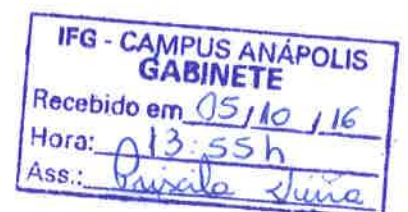 IFG - CAMPUS ANÁPOLIS
GABINETE
Recebido em 05/10/16
Hora: 13:55h
Ass.: Priscila